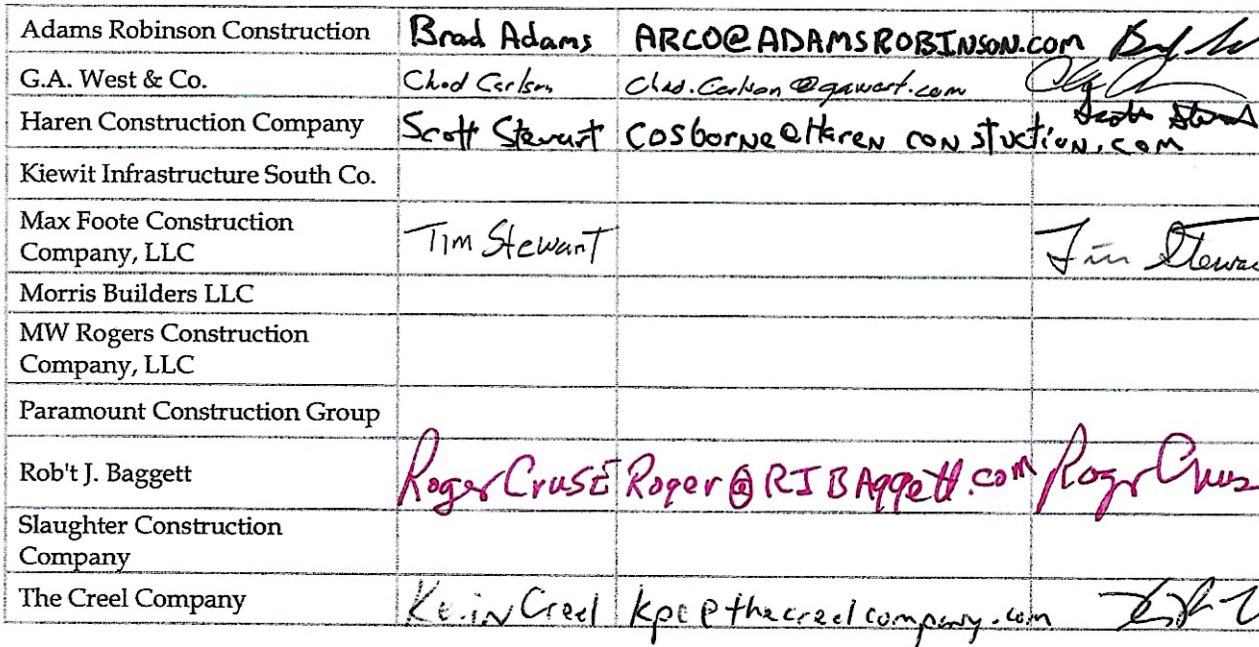 Adams Robinson Construction Brad Adams ARCO@ADAMSROBINSON.com
G.A. West & Co. Chad Carlson Chad.Carlson@gawest.com
Haren Construction Company Scott Stewart cosborne@Haren constuction.com
Kiewit Infrastructure South Co.
Max Foote Construction
Company, LLC Tim Stewart Tim Stewart
Morris Builders LLC
MW Rogers Construction
Company, LLC
Paramount Construction Group
Rob't J. Baggett Roger Cruse Roger@RJBAggett.com Roger Cruse
Slaughter Construction
Company
The Creel Company Kevin Creel kpc@thecreelcompany.com